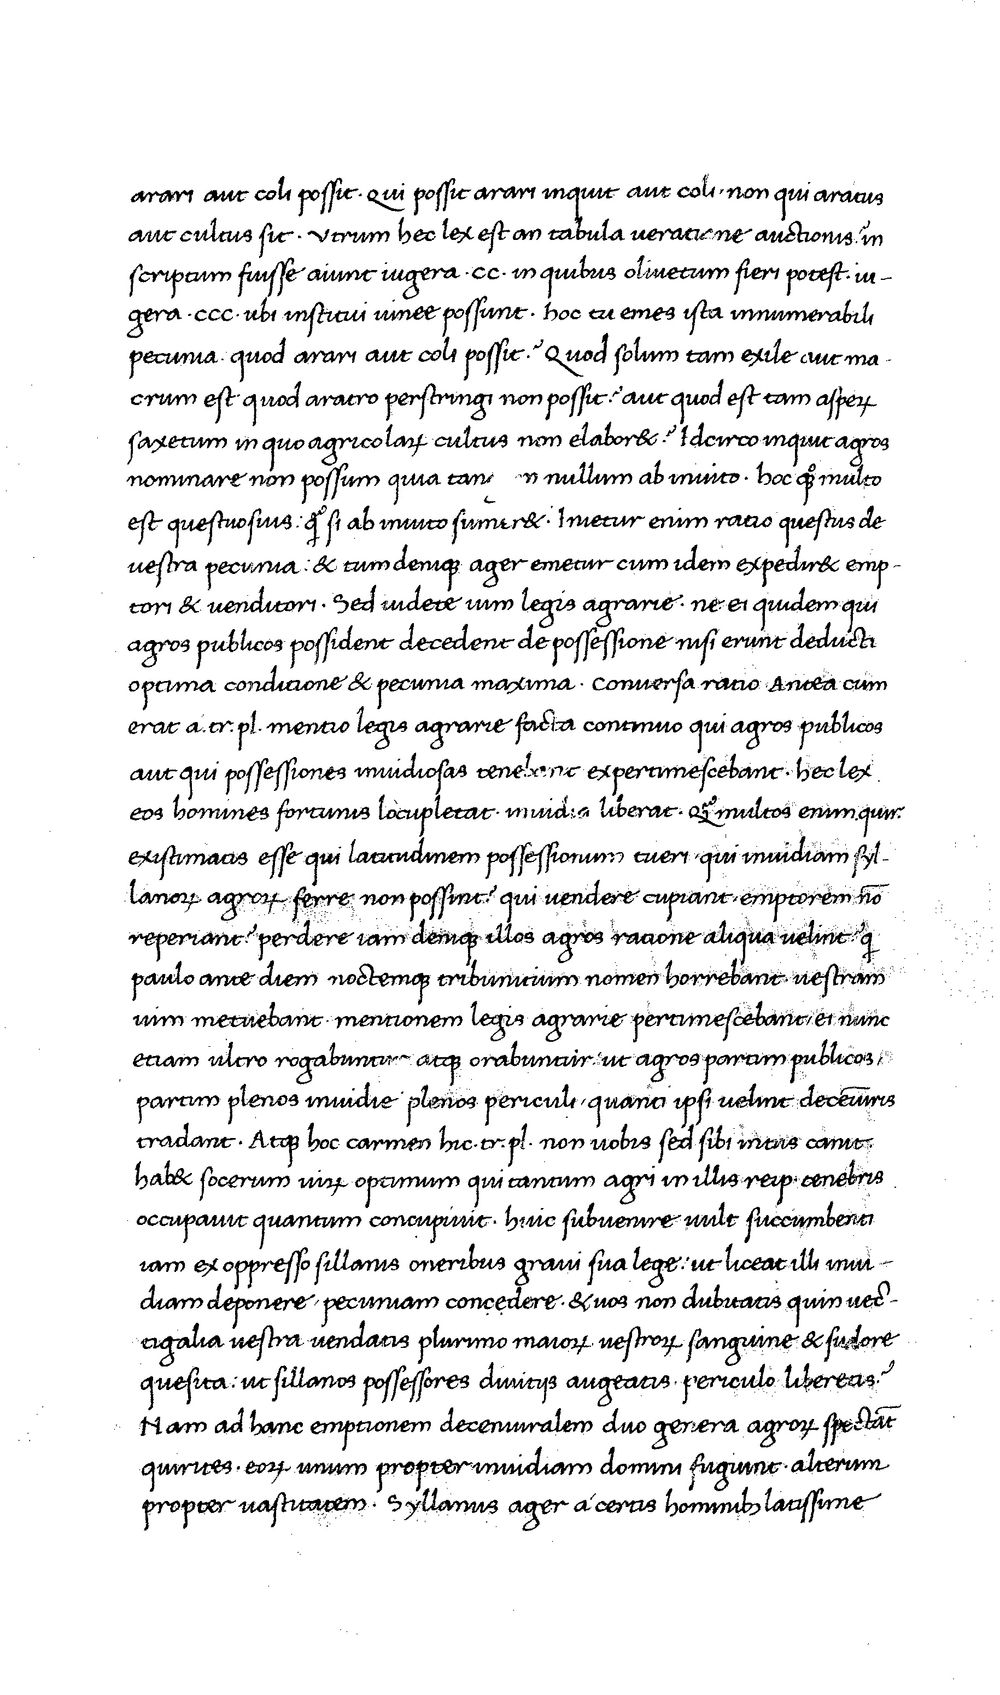 arari aut coli possit. Qui possit arari inquit aut coli, non qui aratus
aut cultus sit. Vtrum hec lex est an tabula ueratiane auctionis? in
scriptum fuisse aiunt iugera .CC. in quibus oliuetum fieri potest. iu-
gera .CCC. ubi institui uinee possunt. hoc tu emes ista innumerabili
pecunia. quod arari aut coli possit? Quod solum tam exile aut ma-
crum est quod aratro perstringi non possit? aut quod est tam asperꝝ
saxetum in quo agricolaꝝ cultus non elabor&? Idcirco inquit agros
nominare non possum quia tan n nullum ab inuito. hoc multo
est questuosius: si ab inuito sumer&. Inietur enim ratio questus de
uestra pecunia: & tum demiqꝫ ager emetur cum idem expedir& emp-
tori & uenditori. Sed uidete uim legis agrarie. ne ei quidem qui
agros publicos possident decedent de possessione nisi erunt deducti
optima conditione & pecunia maxima. Conuersa ratio Antea cum
erat a.tr.pl. mentio legis agrarie facta continuo qui agros publicos
aut qui possessiones inuidiosas tenebant expertimescebant. hec lex
eos homines fortunis locupletat. inuidia liberat. multos enim quir.
existimatis esse qui latitudinem possessionum tueri, qui inuidiam syl-
lanoꝝ agroꝝ ferre non possint? qui uendere cupiant, emptorem nō
reperiant? perdere iam demiqꝫ illos agros ratione aliqua uelint? q̨
paulo ante diem noctemqꝫ tribunitium nomen horrebant. uestram
uim metuebant. mentionem legis agrarie pertimescebant, ei nunc
etiam ultro rogabuntur atqꝫ orabuntur: ut agros partim publicos,
partim plenos inuidie plenos periculi, quanti ipsi uelint deceu̅iris
tradant. Atqꝫ hoc carmen hic.tr.pl. non uobis sed sibi intus canit.
hab& socerum uiꝝ optimum qui tantum agri in illis reip. tenebris
occupauit quantum concupiuit. huic subuenire uult succumbenti
iam ex oppresso sillanis oneribus graui sua lege: ut liceat illi inui-
diam deponere, pecuniam concedere. & uos non dubitatis quin uec-
tigalia uestra uendatis plurimo maioꝝ uestroꝝ sanguine & sudore
quesita: ut sillanos possessores diuitijs augeatis. periculo liberetis?
Nam ad hanc emptionem decemuiralem duo genera agroꝝ spectāt
quirites. eoꝝ unum propter inuidiam domini fugiunt. alterum
propter uastitatem. Syllanus ager a certis hominibꝫ latissime